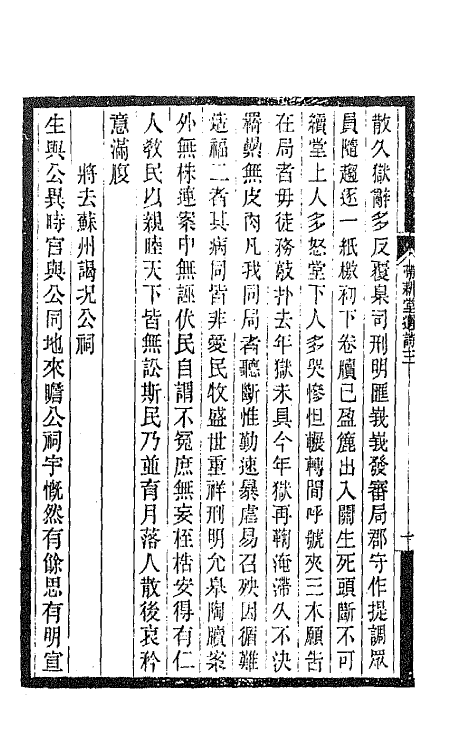 散久獄辭多反覆臬司刑明匯峩峩發審局郡守作提調眾
員隨趨逐一紙檄初下卷牘已盈簏出入關生死頭斷不可
續堂上人多怒堂下人多哭慘怛輾轉間呼號夾三木願告
在局者毋徒務敲扑去年獄未具今年獄再鞫淹滯久不決
骼爇無皮肉凡我同局者聽斷惟勤速暴虐易召殃因循難
造福二者其病同皆非愛民牧盛世重祥刑明允皋陶牘案
外無株連案中無誣伏民自謂不冤庶無妄桎梏安得有仁
人教民以親睦天下皆無訟斯民乃並育月落人散後哀矜
意滿腹
將去蘇州謁况公祠
生與公異時官與公同地來瞻公祠宇慨然有餘思有明宣
堂遺詩